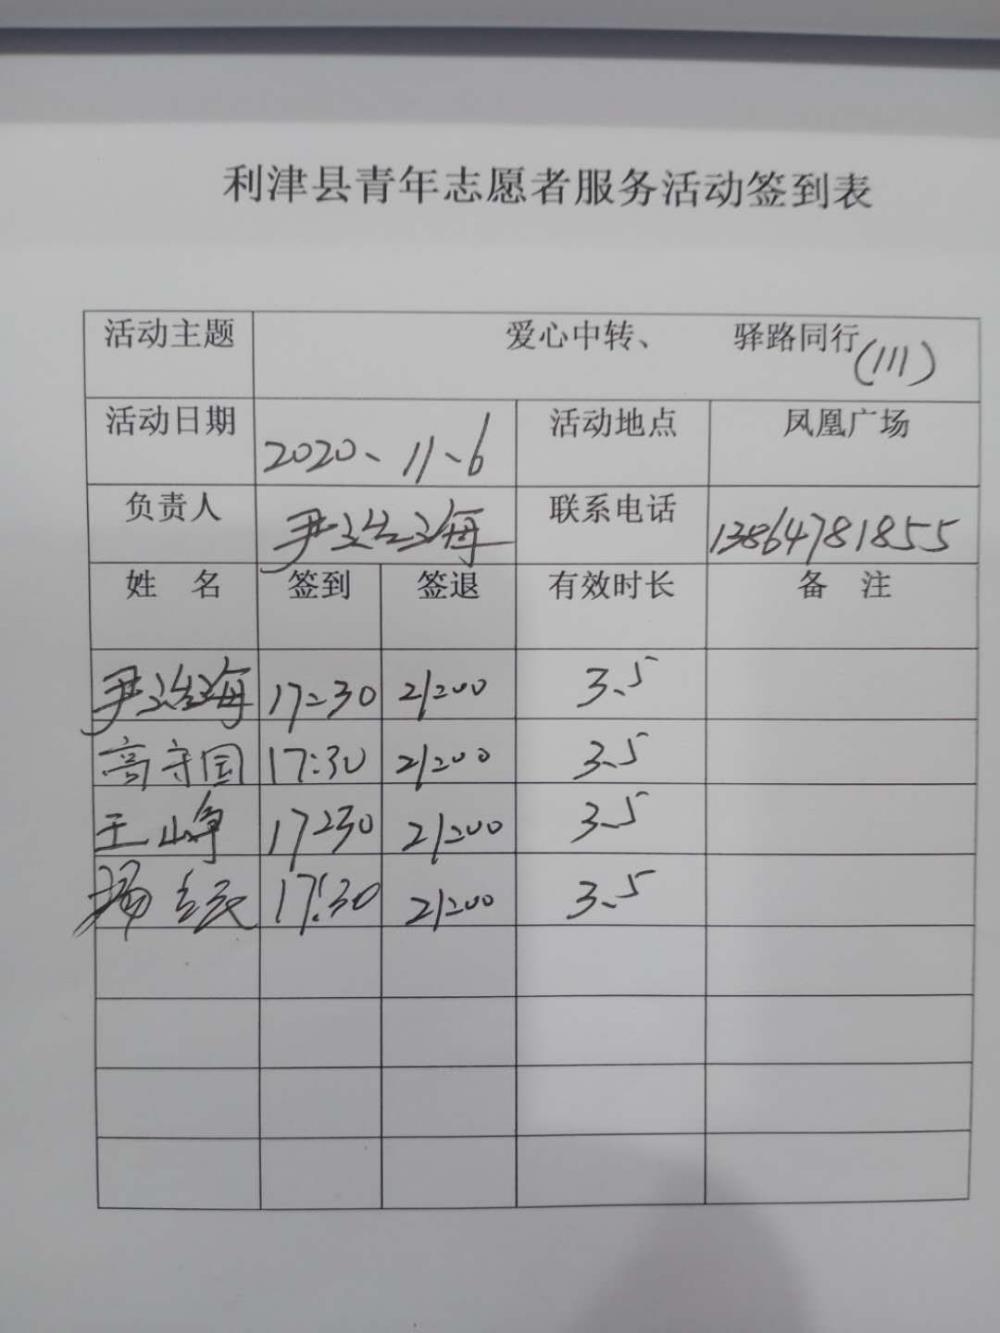 利津县青年志愿者服务活动签到表
活动主题 爱心中转、 驿路同行(111)
活动日期 2020、11、6 活动地点 凤凰广场
负责人 尹治海 联系电话 13864781855
姓 名 签到 签退 有效时长 备 注
尹治海 17:30 21:00 3.5
高守国 17:30 21:00 3.5
王峥 17:30 21:00 3.5
杨 17:30 21:00 3.5